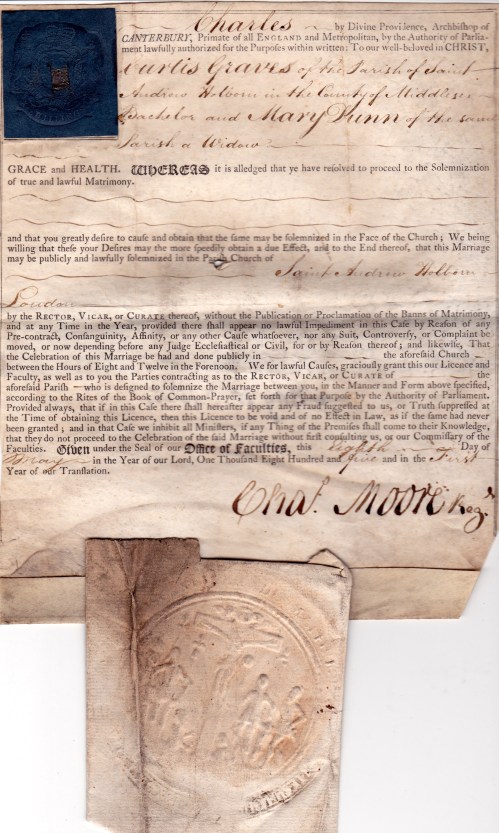 Charles by Divine Providence, Archbishop of
CANTERBURY, Primate of all ENGLAND and Metropolitan, by the Authority of Parlia-
ment lawfully authorized for the Purposes within written: To our well-beloved in CHRIST,
Curtis Graves of the Parish of Saint
Andrew Holborn in the County of Middlesex
Bachelor and Mary Dunn of the same
Parish a Widow
GRACE and HEALTH. WHEREAS it is alledged that ye have resolved to proceed to the Solemnization
of true and lawful Matrimony.
and that you greatly desire to cause and obtain that the same may be solemnized in the Face of the Church; We being
willing that these your Desires may the more speedily obtain a due Effect, and to the End thereof, that this Marriage
may be publicly and lawfully solemnized in the Parish Church of
Saint Andrew Holborn
London
by the RECTOR, VICAR, or CURATE thereof, without the Publication or Proclamation of the Banns of Matrimony,
and at any Time in the Year, provided there shall appear no lawful Impediment in this Case by Reason of any
Pre-contract, Consanguinity, Affinity, or any other Cause whatsoever, nor any Suit, Controversy, or Complaint be
moved, or now depending before any Judge Ecclesiastical or Civil, for or by Reason thereof; and likewise, That
the Celebration of this Marriage be had and done publicly in the aforesaid Church
between the Hours of Eight and Twelve in the Forenoon. We for lawful Causes, graciously grant this our Licence and
Faculty, as well as to you the Parties contracting as to the RECTOR, VICAR, or CURATE of the
aforesaid Parish who is designed to solemnize the Marriage between you, in the Manner and Form above specified,
according to the Rites of the Book of Common-Prayer, set forth for that Purpose by the Authority of Parliament.
Provided always, that if in this Case there shall hereafter appear any Fraud suggested to us, or Truth suppressed at
the Time of obtaining this Licence, then this Licence to be void and of no Effect in Law, as if the same had never
been granted; and in that Case we inhibit all Ministers, if any Thing of the Premises shall come to their Knowledge,
that they do not proceed to the Celebration of the said Marriage without first consulting us, or our Commissary of the
Faculties. Given under the Seal of our Office of Faculties, this eighth Day of
May in the Year of our Lord, One Thousand Eight Hundred and five and in the First
Year of our Translation.
Chas. Moore Regr.